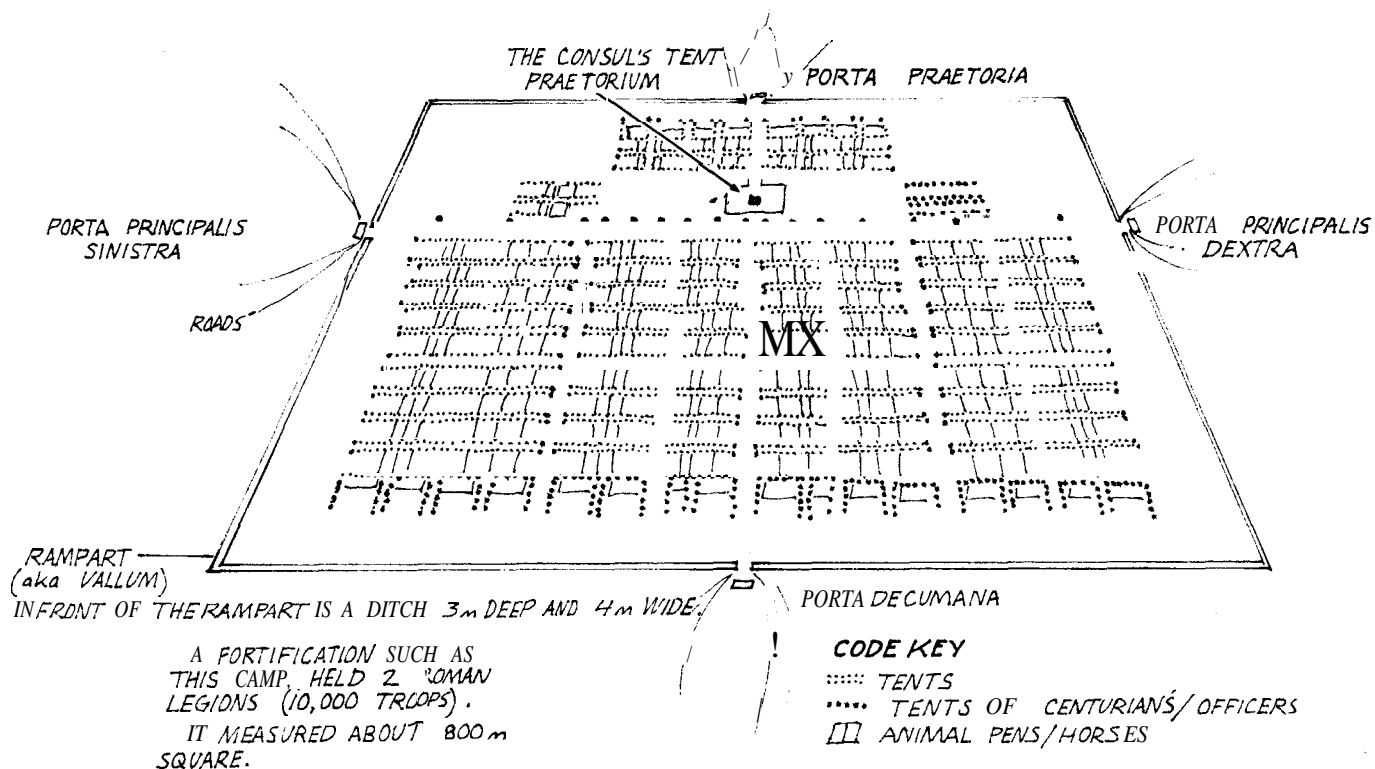 THE CONSUL'S TENT
PRAETORIUM
y PORTA PRAETORIA
PORTA PRINCIPALIS
SINISTRA
PORTA PRINCIPALIS
DEXTRA
ROADS
MX
RAMPART
(aka VALLUM)
IN FRONT OF THE RAMPART IS A DITCH 3m DEEP AND 4m WIDE.
PORTA DECUMANA
A FORTIFICATION SUCH AS
THIS CAMP, HELD 2 ROMAN
LEGIONS (10,000 TROOPS).
IT MEASURED ABOUT 800m
SQUARE.
! CODE KEY
TENTS
TENTS OF CENTURIAN'S/OFFICERS
ANIMAL PENS/HORSES